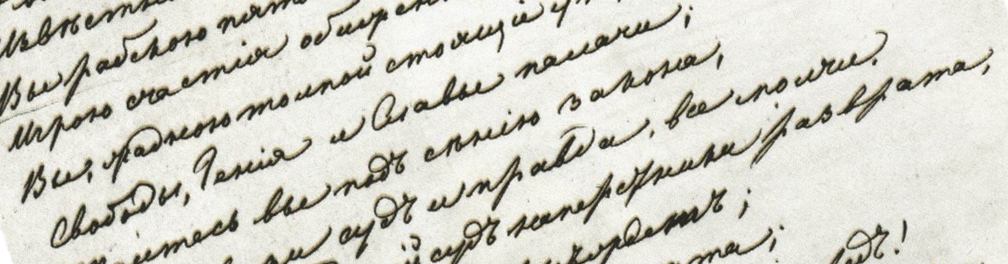 Извѣстн
Вы рабскою пято
Игрою счастія обижен
Вы, жадною толпой стоящіе у
Свободы, Генія и Славы палачи;
итесь вы подъ сѣнію закона,
судъ и правда, все молчи.
й судъ наперстники разврата,